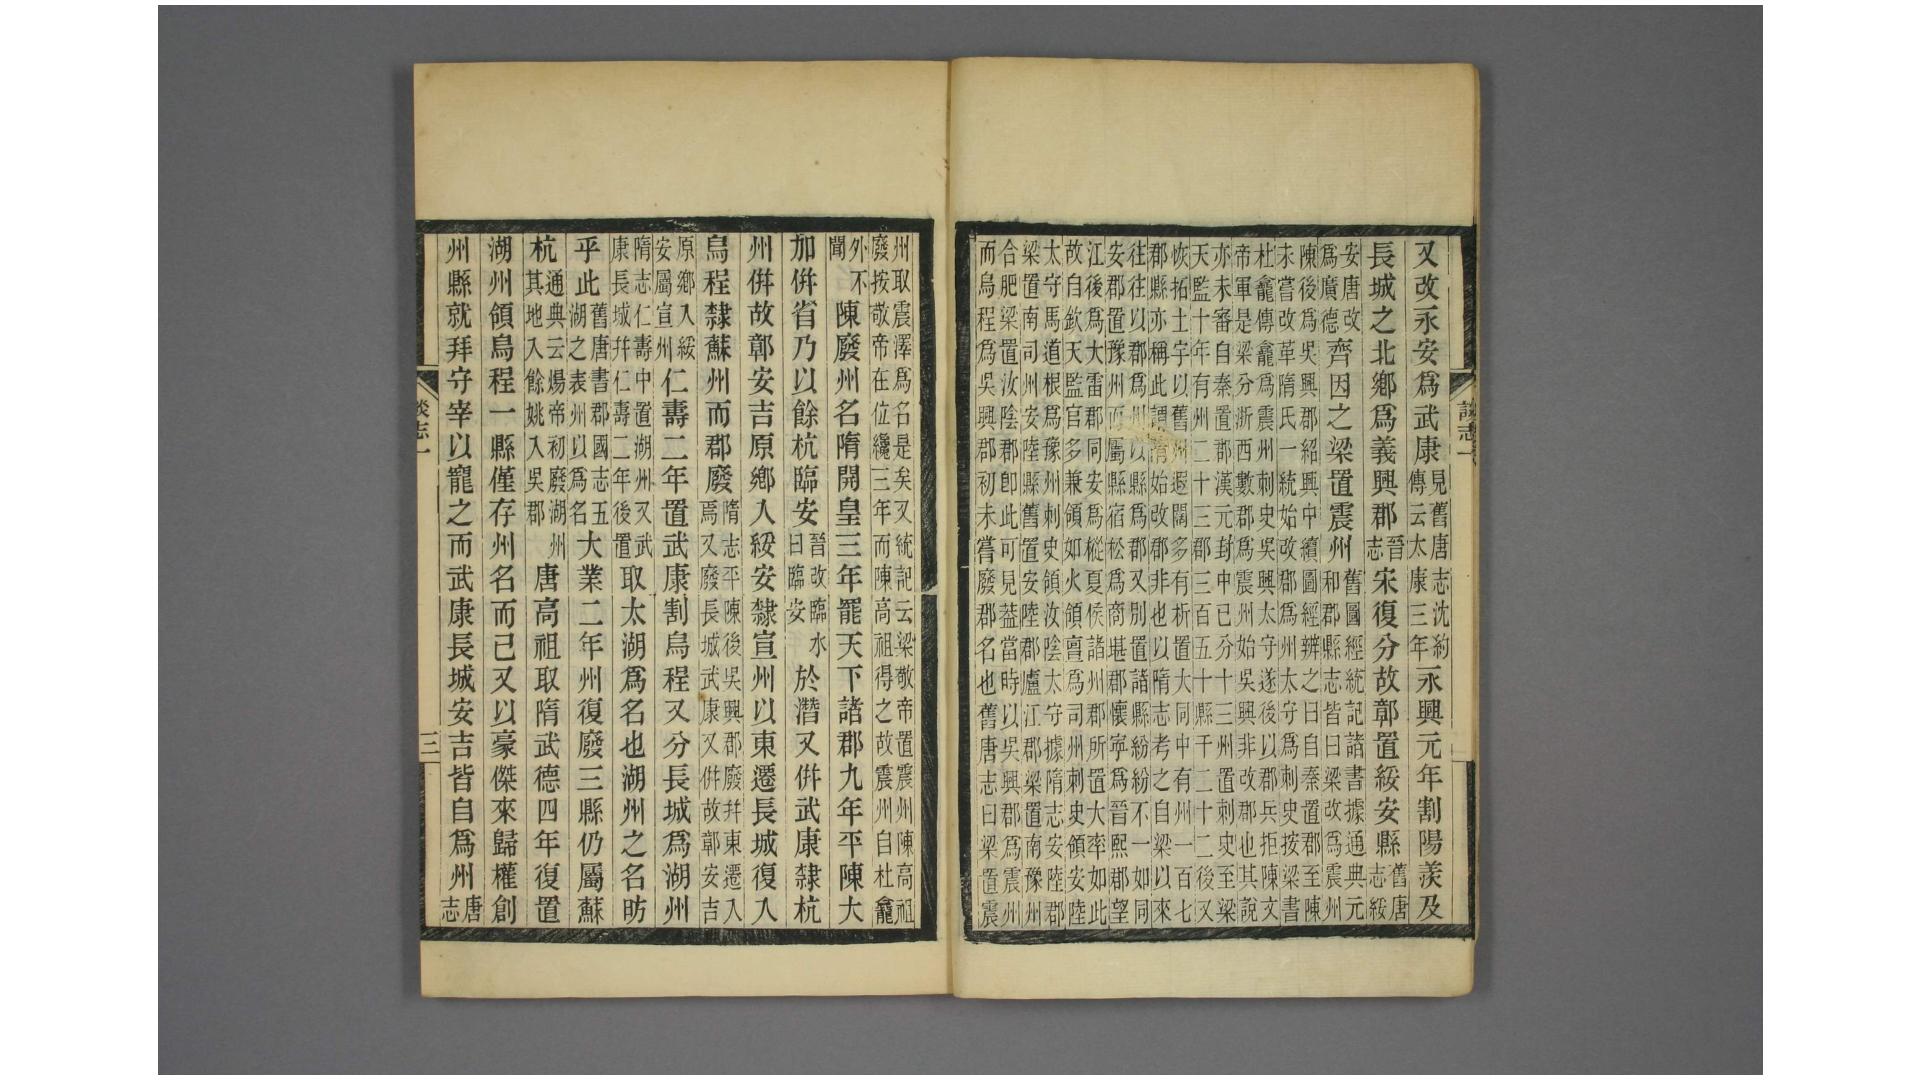 談志一
又改永安爲武康見舊唐志沈約傳云太康三年永興元年割陽羨及
長城之北鄉爲義興郡晉志宋復分故鄣置綏安縣舊唐志綏
安唐改爲廣德齊因之梁置震州舊圖經統記諸書據通典元和郡縣志皆曰梁改爲震州
陳後爲吳興郡紹興中續圖經辨之曰自秦置郡至陳
未嘗改革隋氏一統始改郡爲州太守爲刺史按梁書
杜龕傳龕爲震州刺史吳興太守遂後以郡兵拒陳文
帝軍是梁分浙西數郡爲震州始吳興非改郡也其說
亦未審自秦置郡漢元封中已分十三州置刺史至梁
天監十年有州二十三郡三百五十縣千二十二後又
恢拓土宇以舊州遐闊多有析置大同中有州一百七
郡縣亦稱此謂隋始改郡非也以隋志考之自梁以來
往往以郡爲州以縣爲郡又別置諸縣紛紛不一如同
安郡置豫州而屬縣宿松爲商堪郡懷寧爲晉熙郡望
江後爲大雷郡同安爲樅夏侯諸州郡所置大率如此
故自欽天監官多兼領如火領亶爲司州刺史領安陸
太守馬道根爲豫州刺史領汝陰太守據隋志安陸郡
梁置南司州安陸縣舊置安陸郡廬江郡梁置南豫州
合肥梁置汝陰郡即此可見蓋當時以吳興郡爲震州
而烏程爲吳興郡初未嘗廢郡名也舊唐志曰梁置震
州取震澤爲名是矣又統記云梁敬帝置震州陳高祖
廢按敬帝在位纔三年而陳高祖得之故震州自杜龕
外不聞陳廢州名隋開皇三年罷天下諸郡九年平陳大
加併省乃以餘杭臨安晉改臨水曰臨安於潛又併武康隸杭
州併故鄣安吉原鄉入綏安隸宣州以東遷長城復入
烏程隸蘇州而郡廢隋志平陳後吳興郡廢幷東遷入焉又廢長城武康又併故鄣安吉
原鄉入綏安屬宣州仁壽二年置武康割烏程又分長城爲湖州
隋志仁壽中置湖州又武康長城幷仁壽二年後置取太湖爲名也湖州之名昉
乎此舊唐書郡國志五湖之表州以爲名大業二年州復廢三縣仍屬蘇
杭通典云煬帝初廢湖州其地入餘姚入吳郡唐高祖取隋武德四年復置
湖州領烏程一縣僅存州名而已又以豪傑來歸權創
州縣就拜守宰以寵之而武康長城安吉皆自爲州唐志
談志一
三